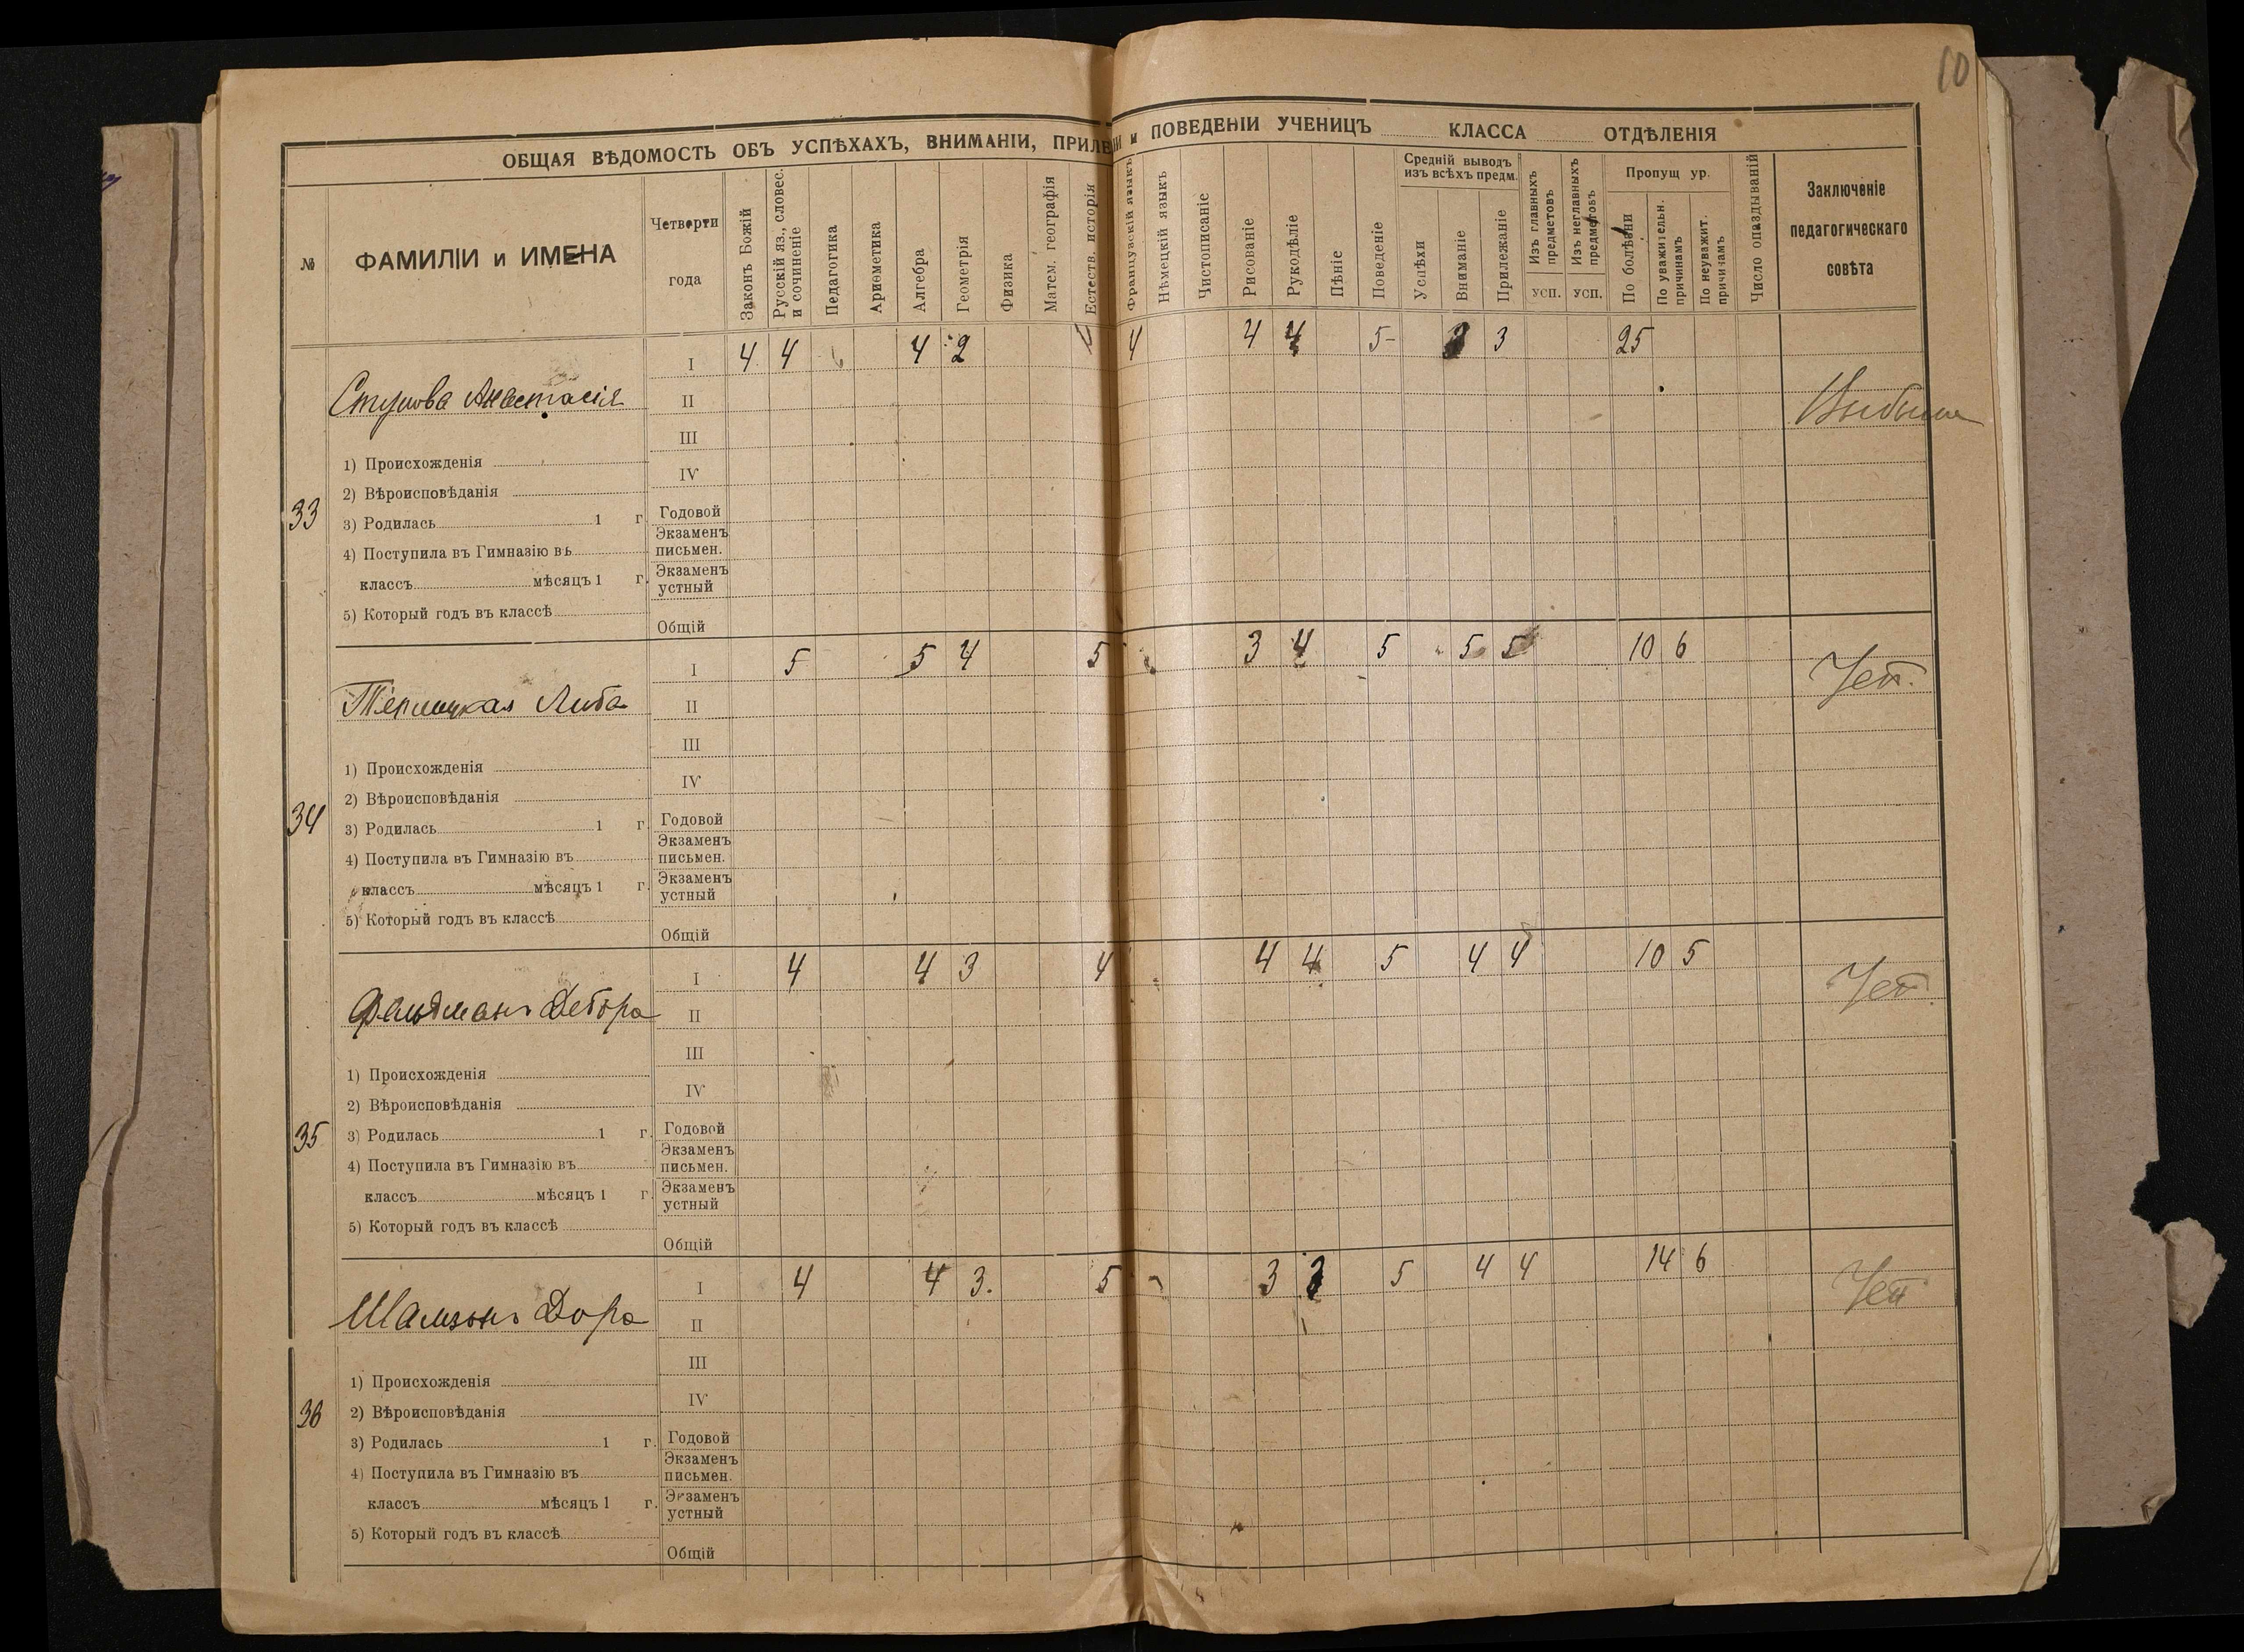 10
ОБЩАЯ ВѢДОМОСТЬ ОБЪ УСПѢХАХЪ, ВНИМАНІИ, ПРИЛЕ ІИ и ПОВЕДЕНІИ УЧЕНИЦЪ КЛАССА ОТДѢЛЕНІЯ
№
ФАМИЛІИ и ИМЕНА
Четверти
года
Законъ Божій
Русскій яз., словес.
и сочиненіе
Педагогика
Ариѳметика
Алгебра
Геометрія
Физика
Матем. географія
Естеств. исторія
Французскій языкъ
Нѣмецкій языкъ
Чистописаніе
Рисованіе
Рукодѣліе
Пѣніе
Поведеніе
Средній выводъ
изъ всѣхъ предм.
Успѣхи
Вниманіе
Прилежаніе
Изъ главныхъ
предметовъ
усп.
Изъ неглавныхъ
предметовъ
усп.
Пропущ ур.
По болѣзни
По уважительн.
причинамъ
По неуважит.
причинамъ
Число опаздываній
Заключеніе
педагогическаго
совѣта
33
I 4 4 4 2 4 4 4 5- 3 25
Анастасія
II
Выбыла
III
1) Происхожденія
IV
2) Вѣроисповѣданія
3) Родилась 1 г.
Годовой
4) Поступила въ Гимназію въ
Экзаменъ
письмен.
классъ мѣсяцъ 1 г.
Экзаменъ
устный
5) Который годъ въ классѣ
Общій
34
I 5 5 4 5 3 4 5 5 5 10 6
Либа
II
III
1) Происхожденія
IV
2) Вѣроисповѣданія
3) Родилась 1 г.
Годовой
4) Поступила въ Гимназію въ
Экзаменъ
письмен.
классъ мѣсяцъ 1 г.
Экзаменъ
устный
5) Который годъ въ классѣ
Общій
35
I 4 4 3 4 4 4 5 4 4 10 5
Фельдманъ Дебора
II
III
1) Происхожденія
IV
2) Вѣроисповѣданія
3) Родилась 1 г.
Годовой
4) Поступила въ Гимназію въ
Экзаменъ
письмен.
классъ мѣсяцъ 1 г.
Экзаменъ
устный
5) Который годъ въ классѣ
Общій
36
I 4 4 3. 5 3 3 5 4 4 14 6
Шамзонъ Дора
II
III
1) Происхожденія
IV
2) Вѣроисповѣданія
3) Родилась 1 г.
Годовой
4) Поступила въ Гимназію въ
Экзаменъ
письмен.
классъ мѣсяцъ 1 г.
Экзаменъ
устный
5) Который годъ въ классѣ
Общій